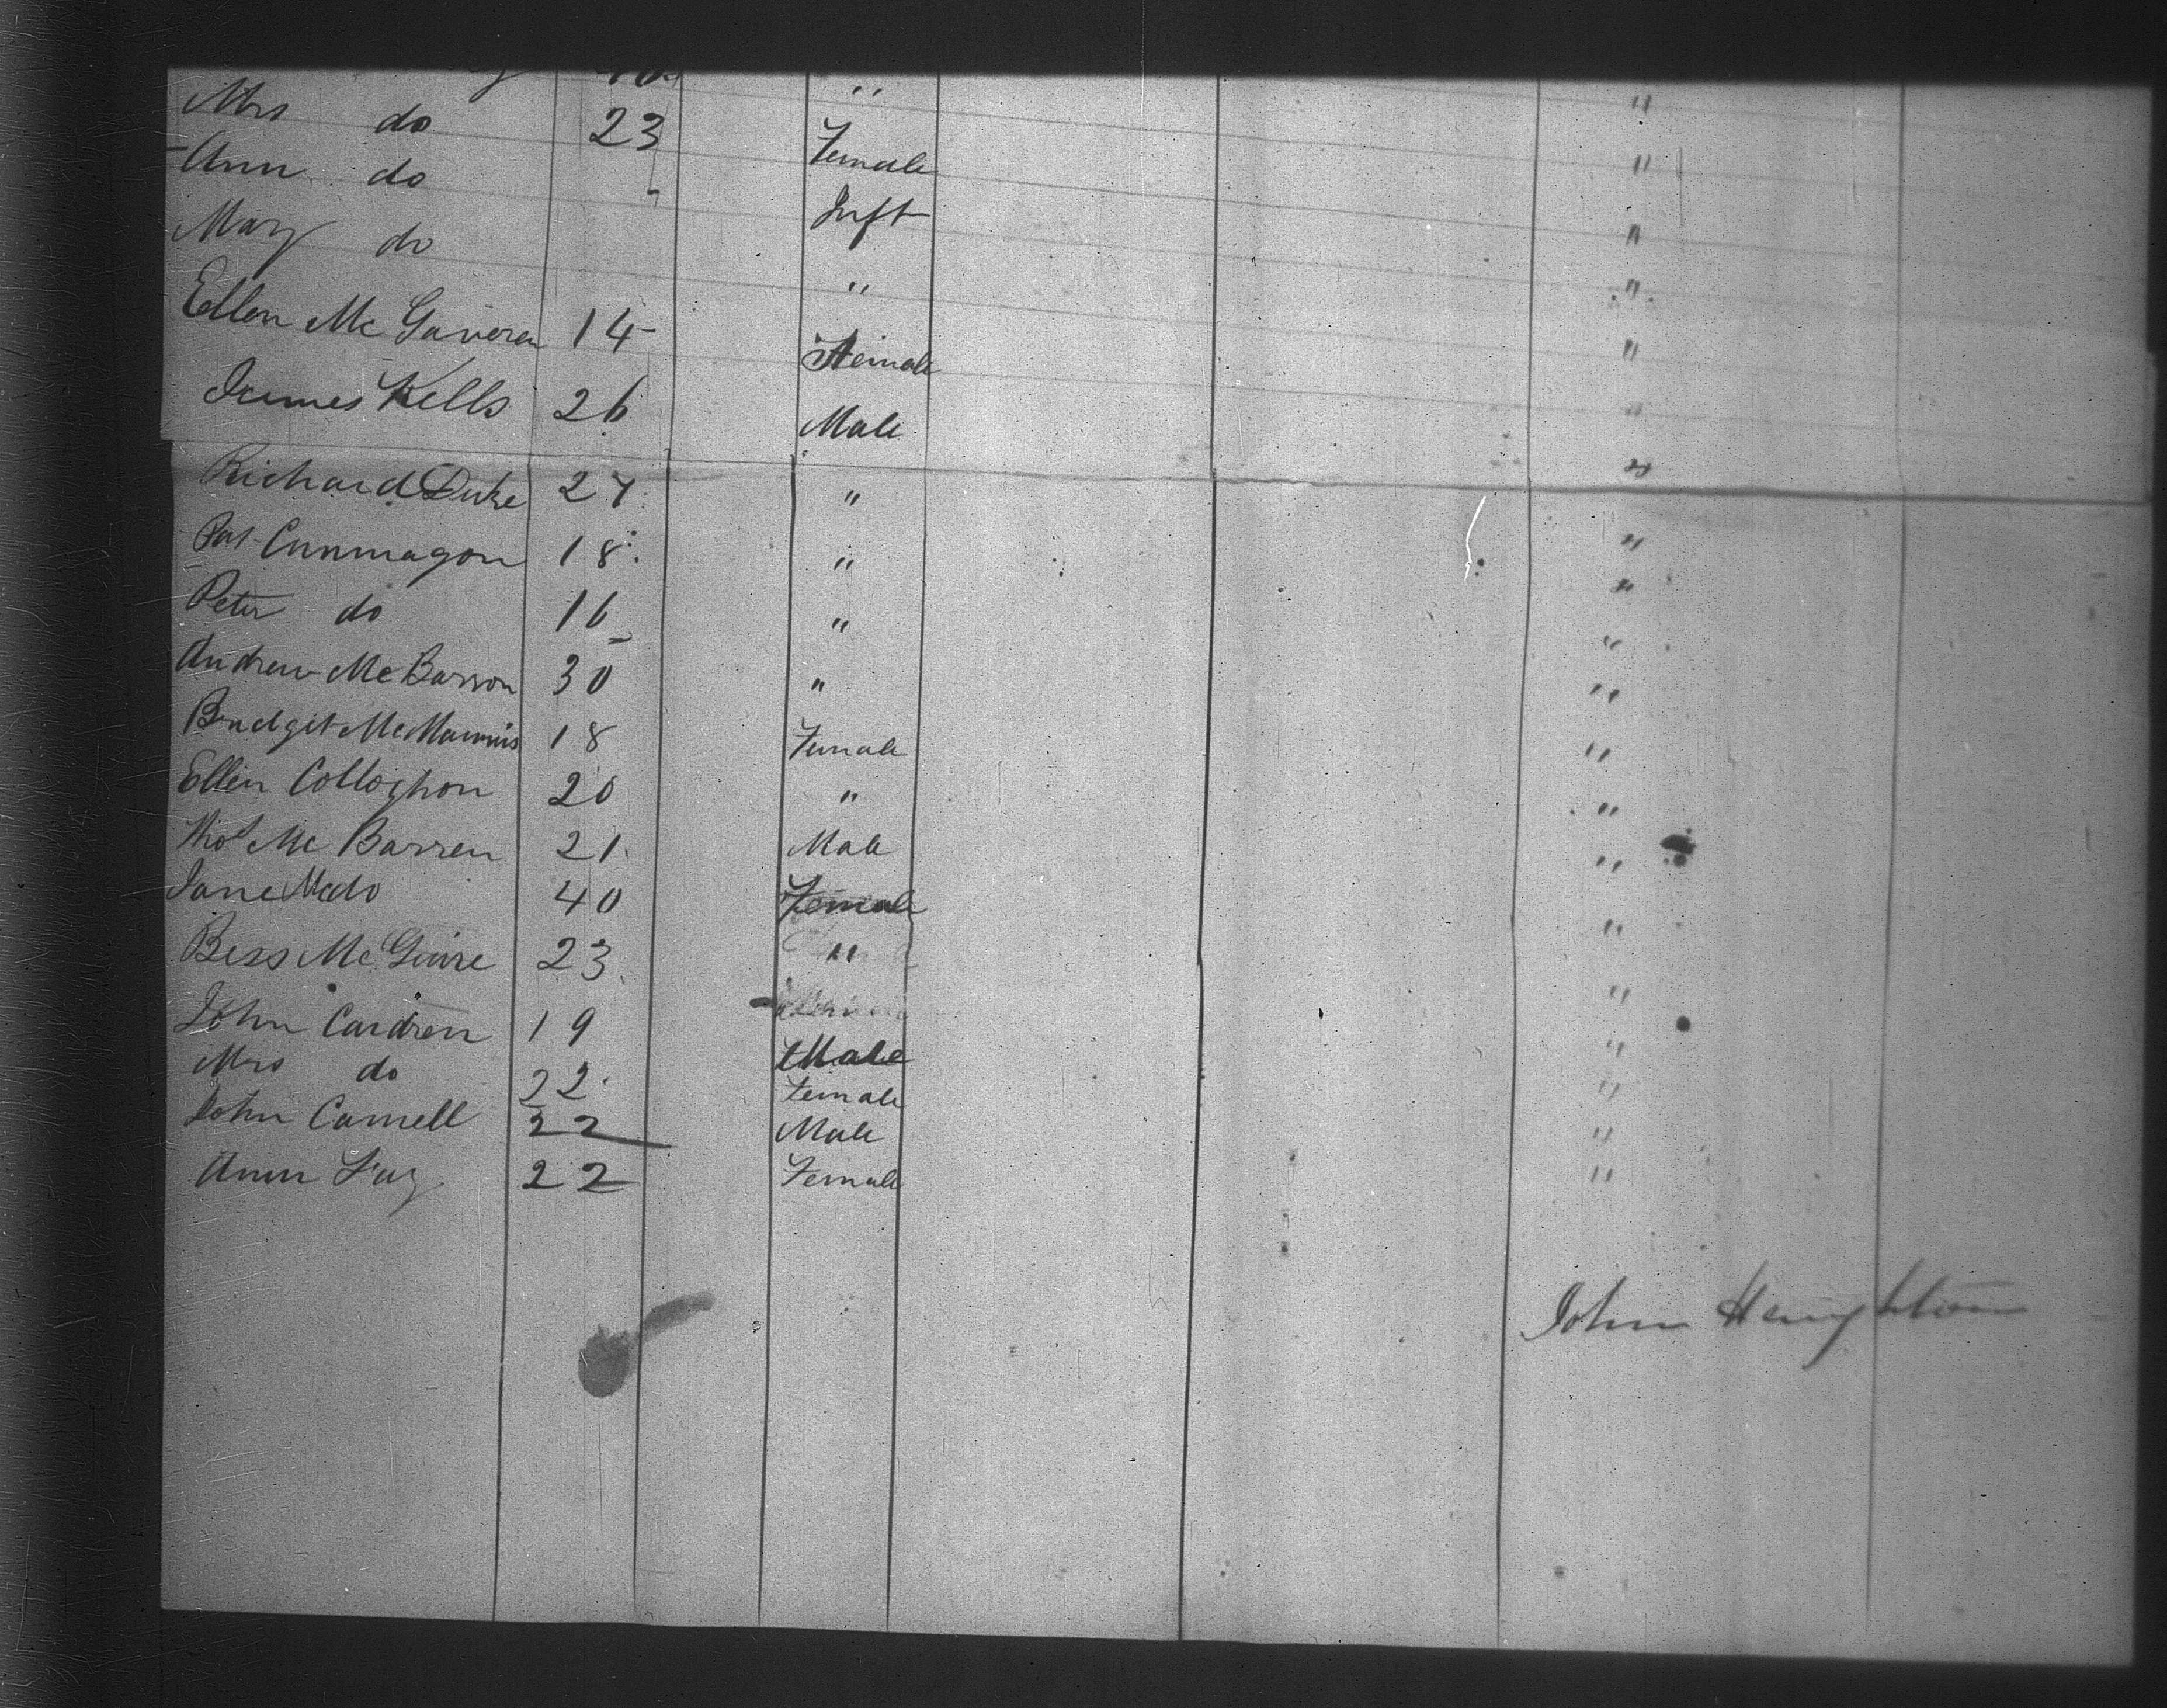 Mrs do 23 Female "
Ann do - Inft "
Mary do " "
Ellen Mc Gaveren 14 Female "
James Kells 26 Male "
Richard Duke 27 " "
Pat Cunmagon 18 " "
Peter do 16 " "
Andrew Mc Barron 30 " "
Bridget McMannis 18 Female "
Ellen Colloghon 20 " "
Thos Mc Barren 21 Male "
Jane Mcdo 40 Female "
Bess Mc Guire 23 " "
John Cardren 19 Male "
Mrs do 22 Female "
John Carnell 22 Male "
Ann Fay 22 Female "
John Haughton